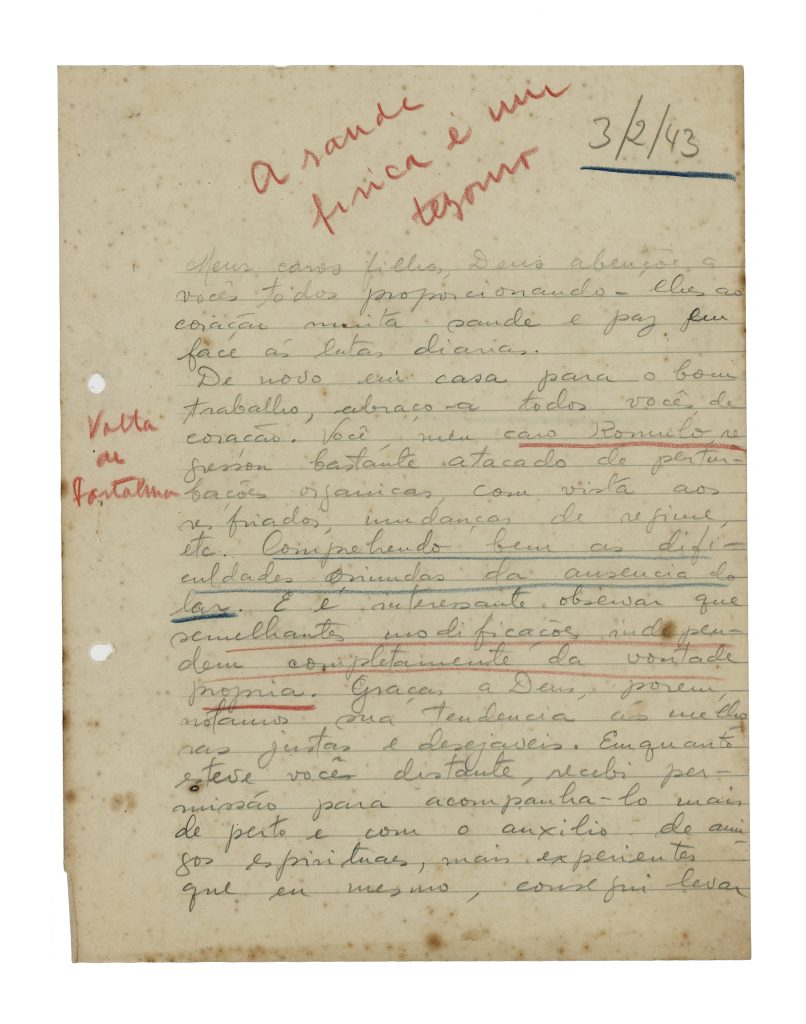 A saude
fisica é um
tezouro
3/2/43
Meus caros filhos, Deus abençôe a
vocês todos proporcionando-lhes ao
coração muita saude e paz em
face ás lutas diarias.
De novo em casa para o bom
trabalho, abraço-a todos vocês, de
coração. Você, meu caro Romulo, re
gressou bastante atacado de pertur-
bações organicas, com vista aos
resfriados, mudanças de regime,
etc. Comprehendo bem as difi-
culdades oriundas da ausencia do
lar. E é interessante observar que
semelhantes modificações indepen-
dem completamente da vontade
propria. Graças a Deus, porem,
notamos sua tendencia ás melho
ras justas e desejaveis. Emquanto
esteve vocês distante, recebi per-
missão para acompanha-lo mais
de perto e com o auxilio de ami
gos espirituaes, mais experientes
que eu mesmo, consegui levar
Volta
de
Fortaleza